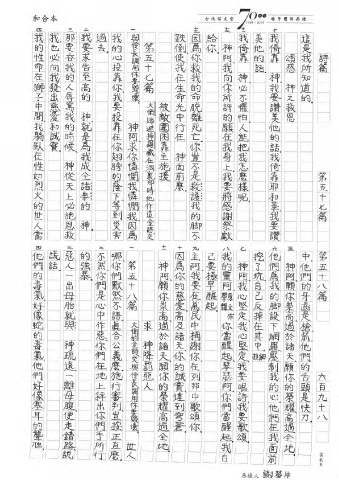 和合本
台北衛理堂 70
詩篇 第五十七篇 第五十八篇 六百九十八
這是我所知道的。
頌讚 神之救恩
我倚靠 神我要讚美他的話我倚靠耶和華我要讚
美他的話。
我倚靠 神我必不懼怕人能把我怎麼樣呢。
神阿我向你所許的願在我身上我要將感謝祭獻
給你。
因為你救我的命脫離死亡你豈不是救護我的腳不
跌倒使我在生命光中行在 神面前麼。
第五十七篇
被敵圍困靠主施援
大衛逃避掃羅藏在洞裏那時他作這金詩交
與伶長調用休要毀壞。
神阿求你憐憫我憐憫我因為
我的心投靠你我要投靠在你翅膀的蔭下等到災害
過去。
我要求告至高的 神就是為我成全諸事的 神。
那要吞我的人辱罵我的時候 神從天上必施恩救
我也必向我發出慈愛和誠實。
我的性命在獅子中間我躺臥在性如烈火的世人當
中他們的牙齒是槍箭他們的舌頭是快刀。
神阿願你崇高過於諸天願你的榮耀高過全地。
他們為我的腳設下網羅壓制我的心他們在我面前
挖了坑自己反掉在其中。細拉
神阿我心堅定我心堅定我要唱詩我要歌頌。
我的靈阿你當醒起琴瑟阿你們當醒起我自
己要極早醒起。
主阿我要在萬民中稱謝你在列邦中歌頌你。
因為你的慈愛高及諸天你的誠實達到穹蒼。
神阿願你崇高過於諸天願你的榮耀高過全地。
第五十八篇
求 神降罰惡人
大衛的金詩交與伶長調用休要毀壞。
世人
哪你們默然不語真合公義麼施行審判豈按正直麼。
不然你們是心中作惡你們在地上秤出你們手所行
的強暴。
惡人一出母胎就與 神疏遠一離母腹便走錯路說
謊話。
他們的毒氣好像蛇的毒氣他們好像塞耳的聾虺。